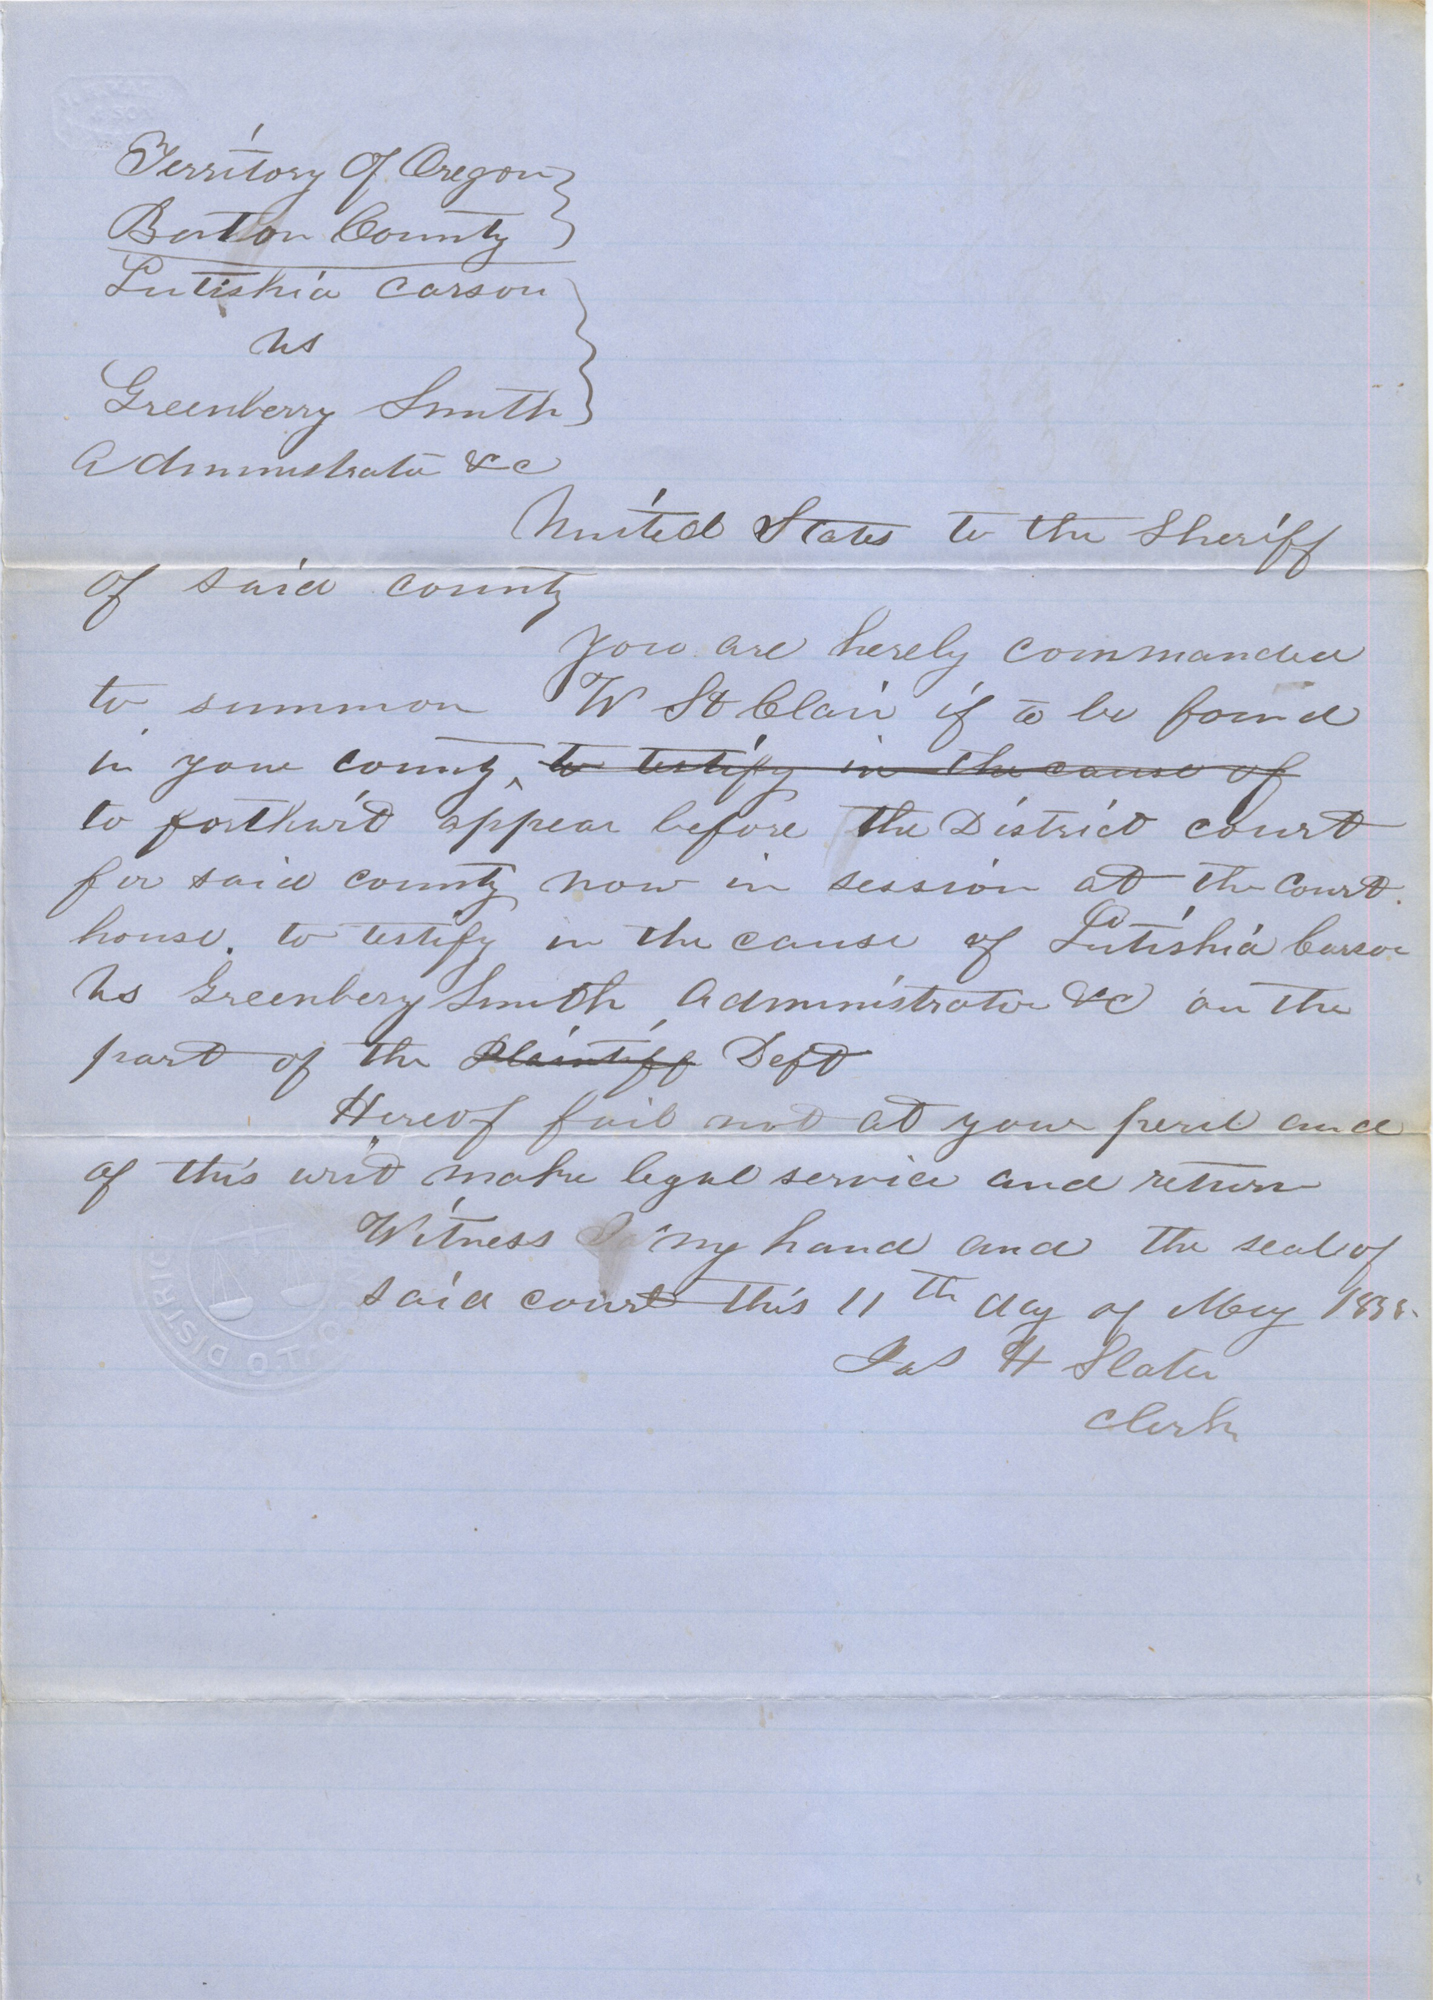 Territory Of Oregon
Benton County
Lutishia Carson
vs
Greenberry Smith
Administrator &c
United States to the Sheriff
of said county
You are hereby commanded
to summon W St Clair if to be found
in your county, to testify in the cause of
to forthwith appear before the District court
for said county now in session at the Court
house. to testify in the cause of Lutishia Carson
vs Greenbery Smith Administrator &c on the
part of the Plaintiff Deft
Hereof fail not at your peril and
of this writ make legal service and return
Witness my hand and the seal of
said court this 11th day of May 185
Jas H Slater
Clerk
O.T. DISTRIC